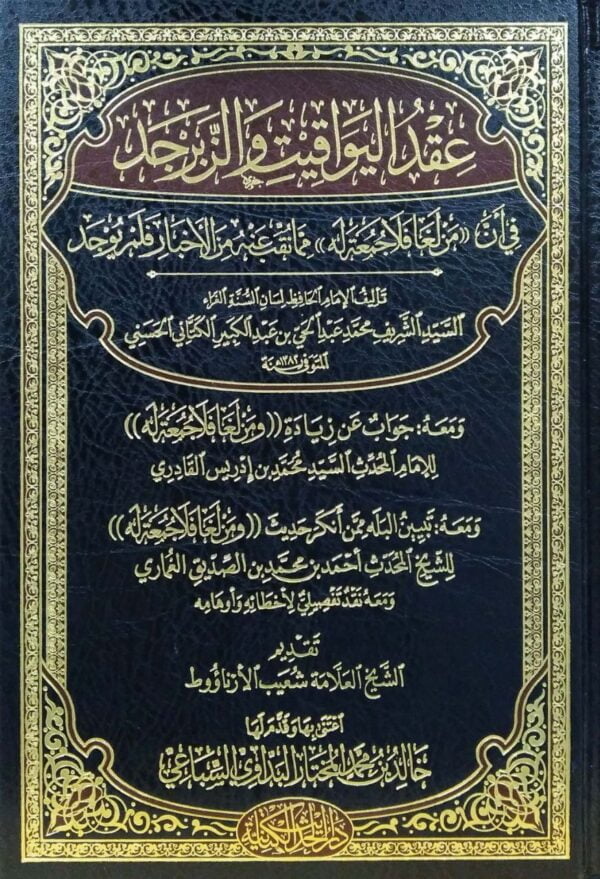 عِقْدُ اليَوَاقِيتِ وَالزَّبَرْجَدِ
فِي أَنَّ «مَنْ لَغَا فَلَا جُمُعَةَ لَهُ» مِمَّا نُقِّبَ عَنْهُ مِنَ الأَخْبَارِ فَلَمْ يُوجَدْ
تَأليفُ الإِمَامِ الحَافِظِ لِسَانِ السُّنَّةِ الغَرَّاءِ
السَّيِّدِ الشَّرِيفِ مُحَمَّد عَبْدِ الحَيِّ بنِ عَبْدِ الكَبِيرِ الكَتَّانِي الحَسَنِي
المُتَوَفَّى ١٣٨٢هـ سَنَة
وَمَعَهُ: جَوَابٌ عَنْ زِيَادَةِ ((وَمَنْ لَغَا فَلَا جُمُعَةَ لَهُ))
لِلإِمَامِ المُحَدِّثِ السَّيِّدِ مُحَمَّدِ بن إِدْرِيسَ القَادِرِي
وَمَعَهُ: تَبْيِينُ البَلَهِ مِمَّنْ أَنْكَرَ حَدِيثَ ((وَمَنْ لَغَا فَلَا جُمُعَةَ لَهُ))
لِلشَّيْخِ المُحَدِّثِ أَحْمَدَ بن مُحَمَّدِ بن الصِّدِّيقِ الغُمَارِي
وَمَعَهُ نَقْدٌ تَفْصِيلِيٌّ لِأَخْطَائِهِ وَأَوْهَامِهِ
تَقْدِيم
الشَّيْخِ العَلَّامَةِ شُعَيْب الأَرْنَاؤُوط
اعْتَنَى بِهَا وَقَدَّمَ لَهَا
خَالِد بن مُحَمَّد المُخْتَار البَدَاوِي السِّبَاعِي